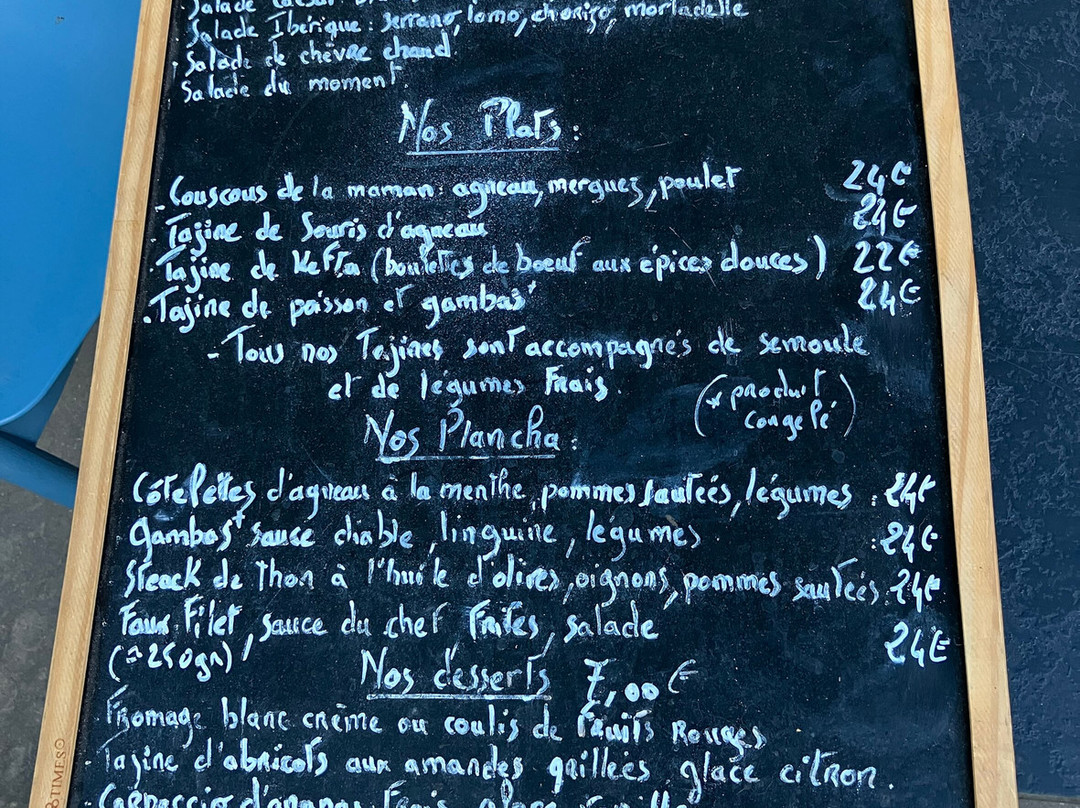 Salade
Salade Ibérique : serrano, lomo, chorizo, mortadelle
- Salade de chèvre chaud
Salade du moment
Nos Plats :
- Couscous de la maman : agneau, merguez, poulet 24€
- Tajine de Souris d'agneau 24€
- Tajine de Kefta (boulettes de boeuf aux épices douces) 22€
- Tajine de poisson et gambas* 24€
- Tous nos Tajines sont accompagnés de semoule
et de légumes Frais.
(* produit
congelé)
Nos Plancha :
Côtelettes d'agneau à la menthe, pommes sautées, légumes : 24€
Gambas* sauce diable, linguine, légumes : 24€
Steack de Thon à l'huile d'olives, oignons, pommes sautées. 24€
Faux Filet, sauce du chef Frites, salade 24€
(≈250gr)
Nos desserts 7,00€
Fromage blanc crème ou coulis de Fruits Rouges
- Tajine d'abricots aux amandes grillées glace citron.
- Carpaccio d'ananas Frais, glace
TIMES